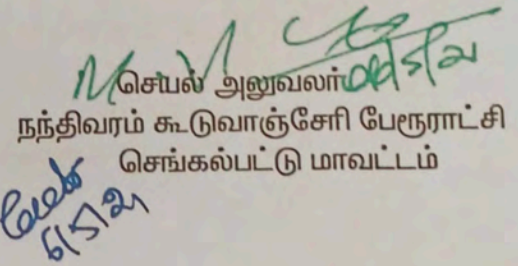 செயல் அலுவலர்
நந்திவரம் கூடுவாஞ்சேரி பேரூராட்சி
செங்கல்பட்டு மாவட்டம்